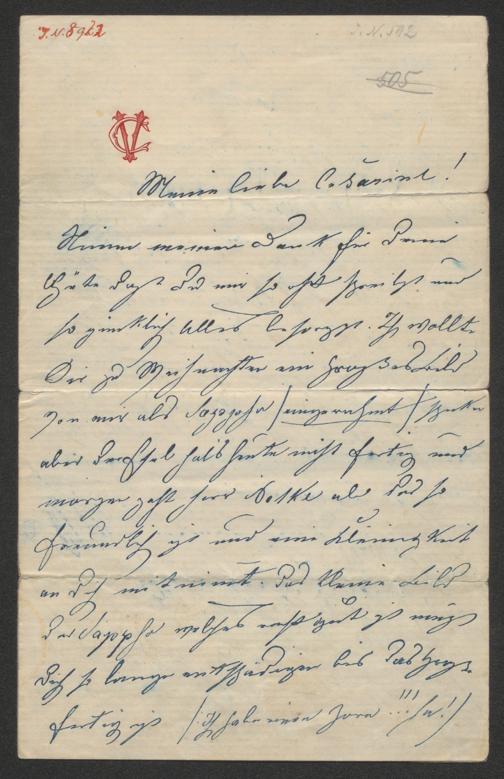 J.N.8922
J.N. 512
505
CV
Meine liebe Cesarine!
Nimm meinen Dank für Deine
Güte daß Du mir so oft schreibst und
so pünktlich Alles besorgst. Ich wollte
Dir zu Weihnachten ein großes Bild
von mir als Sappho / eingerahmt / schicken
aber derselbe heute nicht fertig und
morgen geht Herr Notke als das so
freundlich ist und eine Kleinigkeit
an Dich mitnimmt. Das kleine Bild
der Sappho welches recht gut ist muß
Dich so lange entschädigen bis das große
fertig ist / Ich habe einen Zorn!!! Ha! /